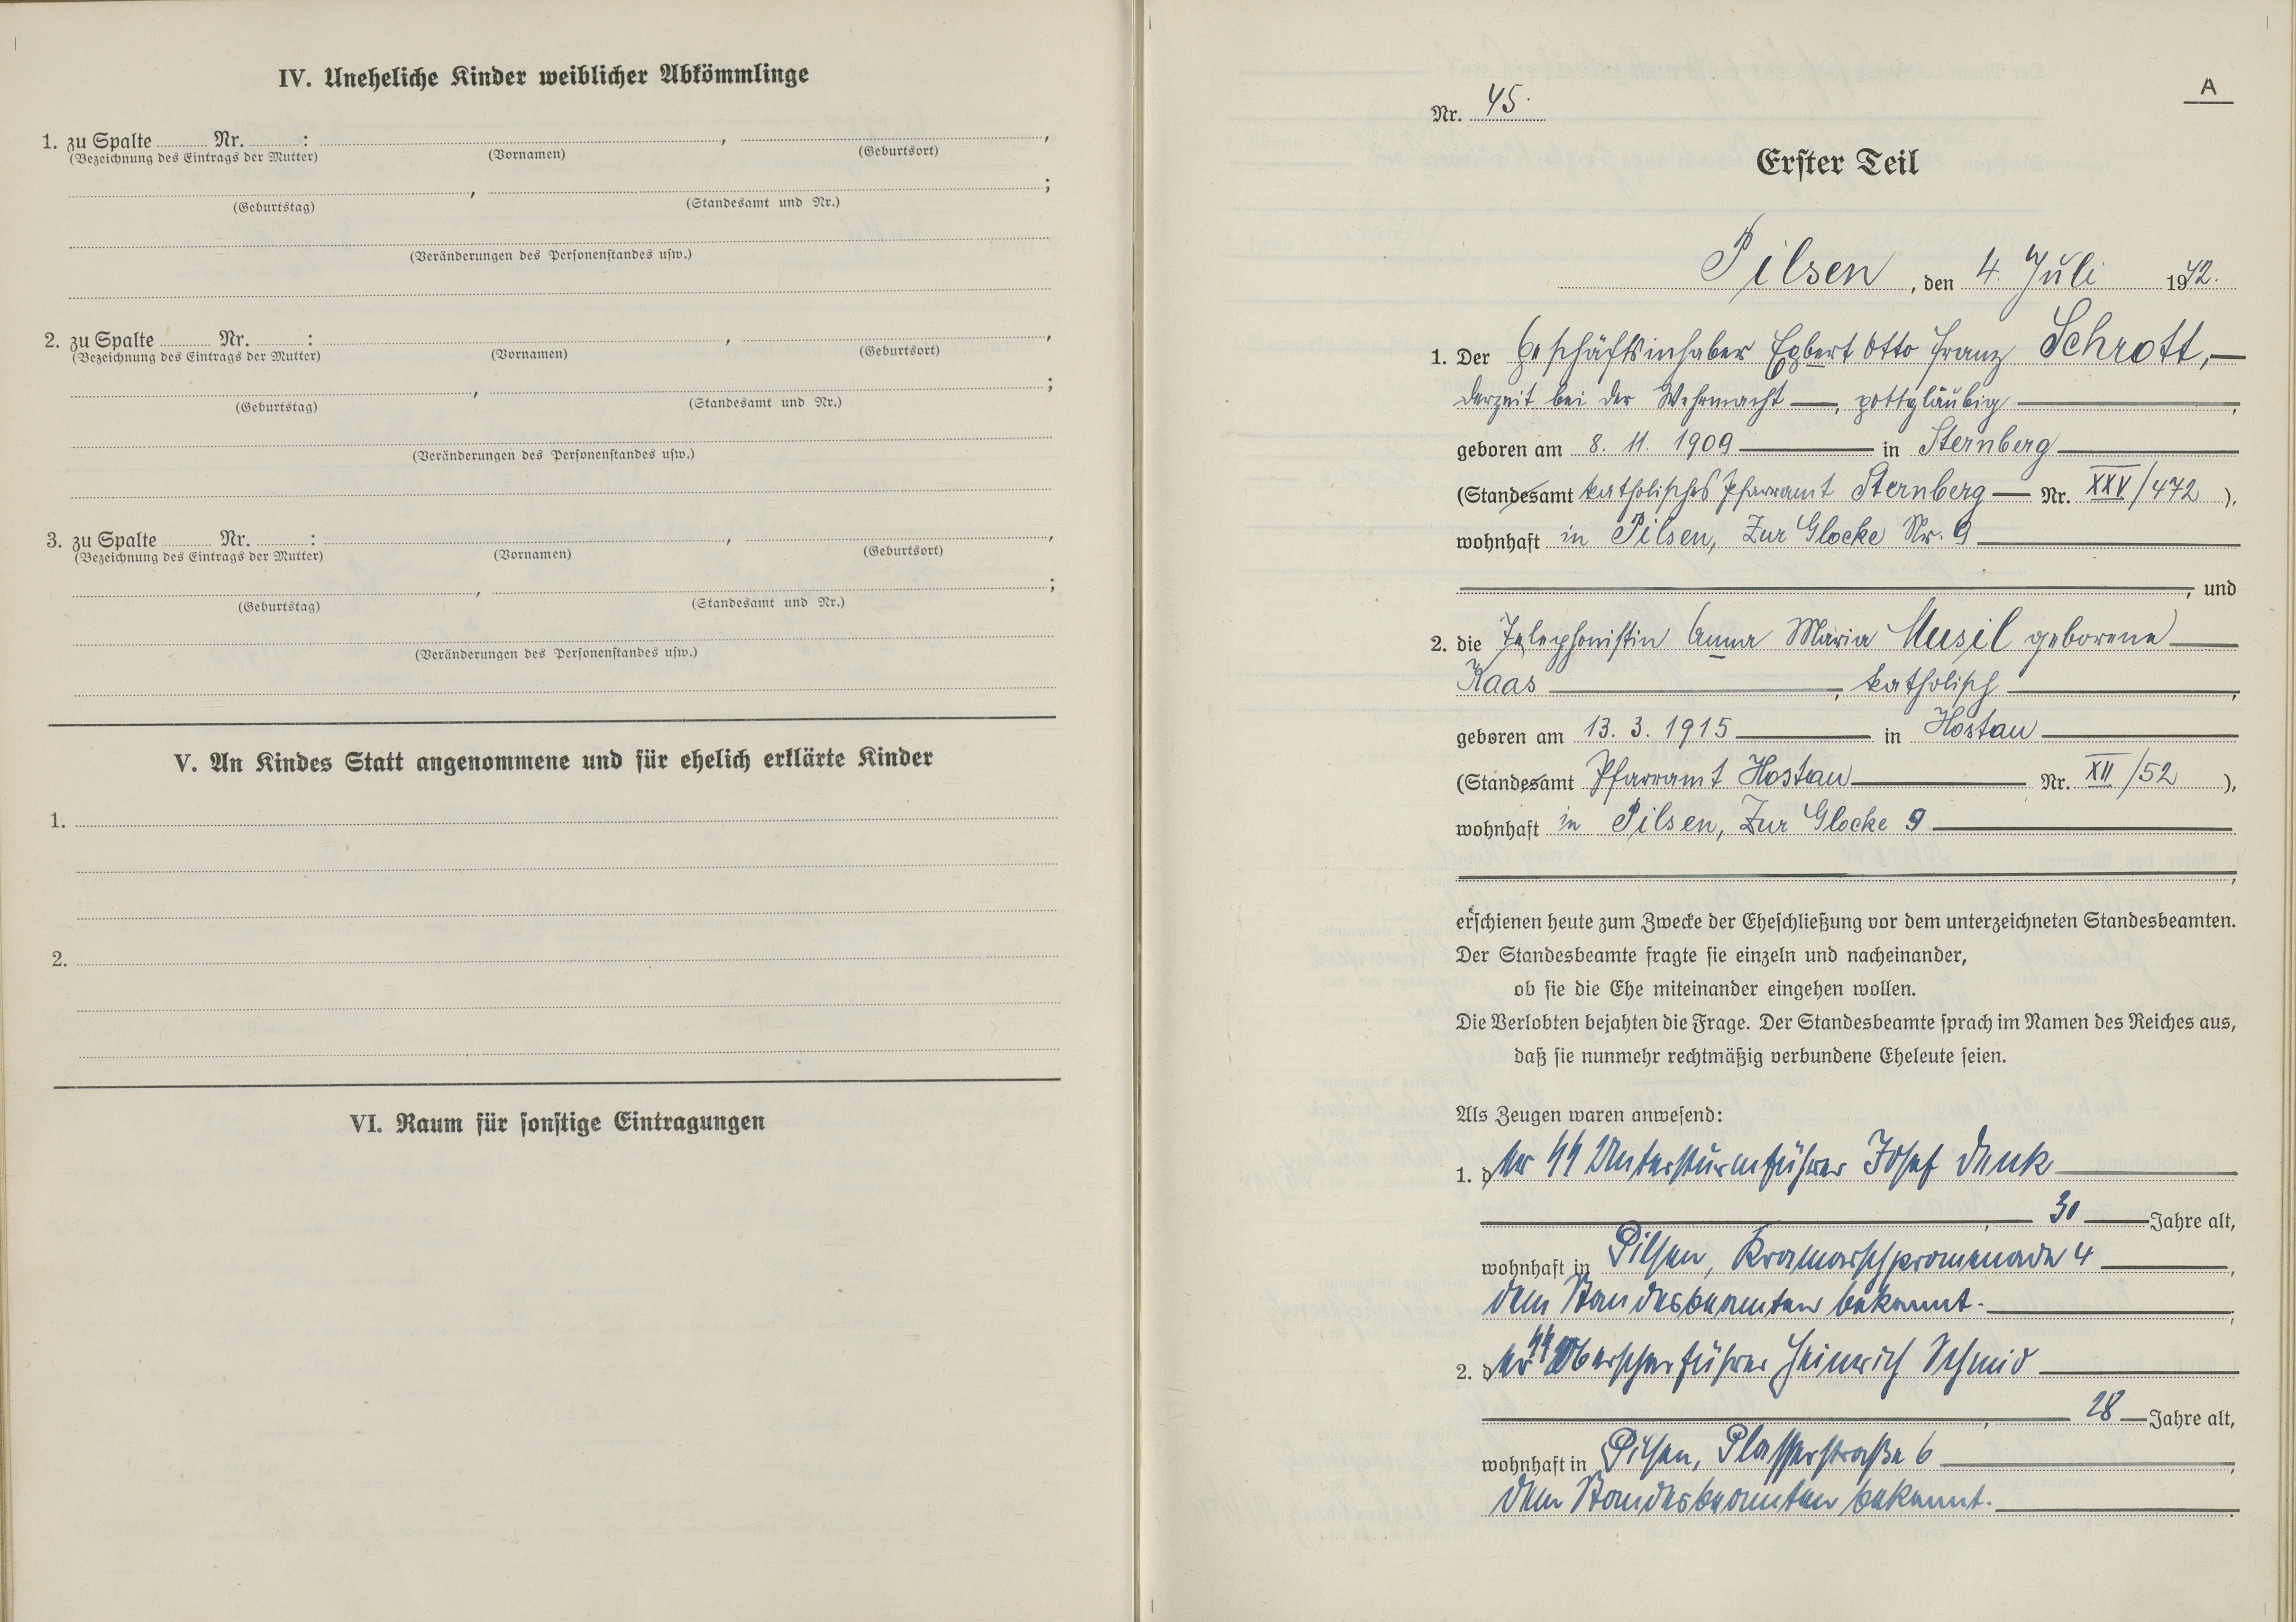 IV. Uneheliche Kinder weiblicher Abkömmlinge
1. zu Spalte ........ Nr. ........ : , ,
(Bezeichnung des Eintrags der Mutter) (Vornamen) (Geburtsort)
, ;
(Geburtstag) (Standesamt und Nr.)
(Veränderungen des Personenstandes usw.)
2. zu Spalte ........ Nr. ........ : , ,
(Bezeichnung des Eintrags der Mutter) (Vornamen) (Geburtsort)
, ;
(Geburtstag) (Standesamt und Nr.)
(Veränderungen des Personenstandes usw.)
3. zu Spalte ........ Nr. ........ : , ,
(Bezeichnung des Eintrags der Mutter) (Vornamen) (Geburtsort)
, ;
(Geburtstag) (Standesamt und Nr.)
(Veränderungen des Personenstandes usw.)
V. An Kindes Statt angenommene und für ehelich erklärte Kinder
1.
2.
VI. Raum für sonstige Eintragungen
A
Nr. 45.
Erster Teil
Pilsen, den 4. Juli 1942.
1. Der Geschäftsinhaber Egbert Otto Franz Schrott, —
derzeit bei der Wehrmacht —, gottgläubig —,
geboren am 8. 11. 1909 — in Sternberg —
(Standesamt katholisches Pfarramt Sternberg — Nr. XXV/472 ),
wohnhaft in Pilsen, Zur Glocke Nr. 9 —
—, und
2. die Telephonistin Anna Maria Musil geborene —
Kaas —, katholisch —,
geboren am 13. 3. 1915 — in Hostau —
(Standesamt Pfarramt Hostau — Nr. XII/52 ),
wohnhaft in Pilsen, Zur Glocke 9 —
—,
erschienen heute zum Zwecke der Eheschließung vor dem unterzeichneten Standesbeamten.
Der Standesbeamte fragte sie einzeln und nacheinander,
ob sie die Ehe miteinander eingehen wollen.
Die Verlobten bejahten die Frage. Der Standesbeamte sprach im Namen des Reiches aus,
daß sie nunmehr rechtmäßig verbundene Eheleute seien.
Als Zeugen waren anwesend:
1. der SS Untersturmführer Josef Denk —
—, 30 — Jahre alt,
wohnhaft in Pilsen, Kramarschpromenade 4 —,
dem Standesbeamten bekannt. —;
2. der SS Oberscharführer Heinrich Schmid —
—, 28 — Jahre alt,
wohnhaft in Pilsen, Plasserstraße 6 —,
dem Standesbeamten bekannt. —.